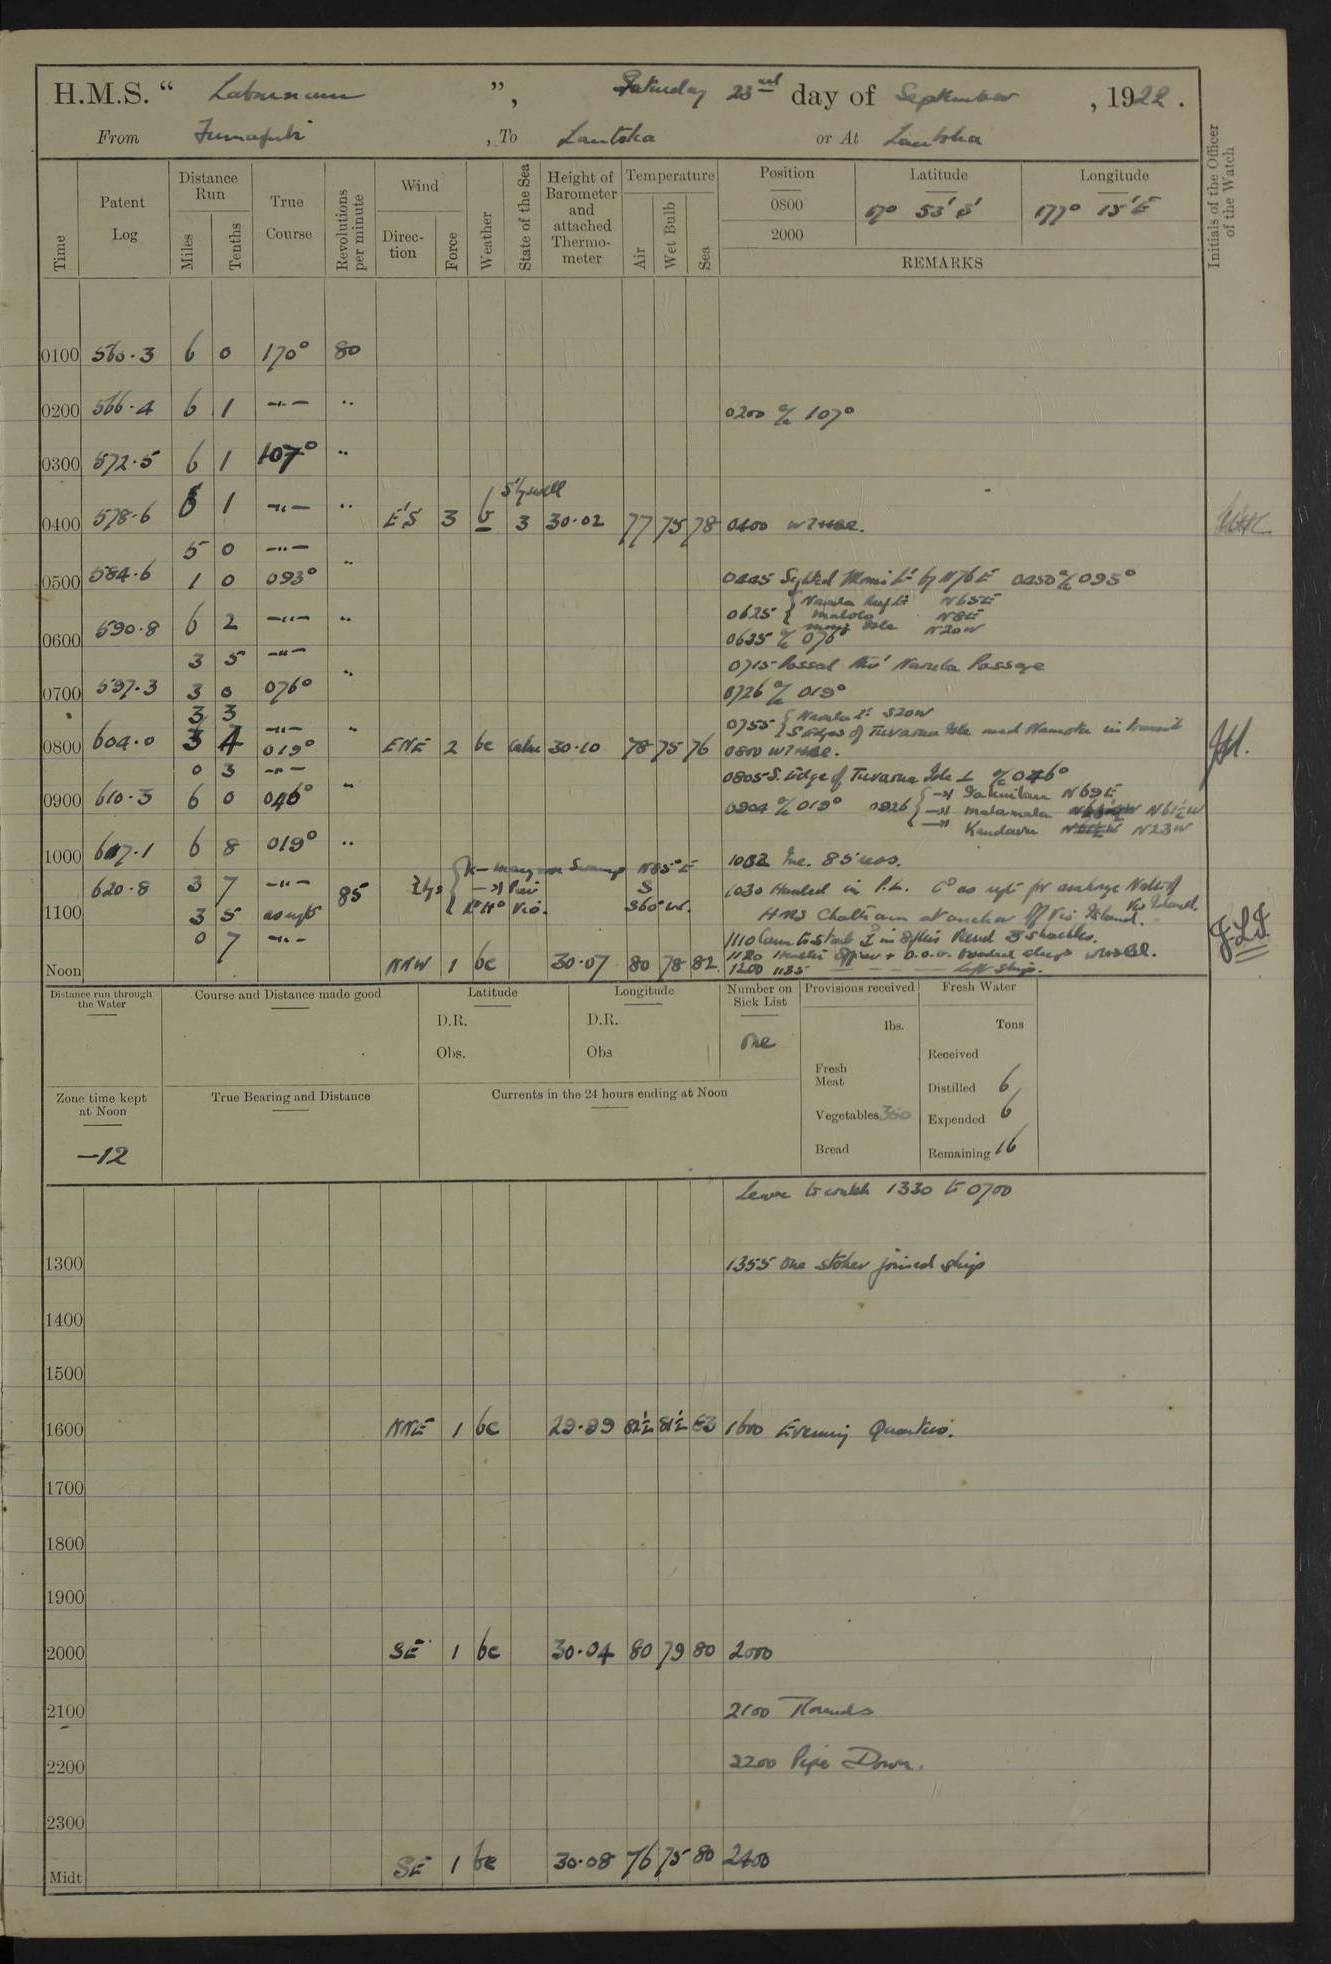 H.M.S. “ Laburnum ”, Saturday 23rd day of September , 1922 .
From Funafuti , To Lautoka or At Lautoka
Time
Patent Log
Distance Run
Miles
Tenths
True Course
Revolutions per minute
Wind
Direction
Force
Weather
State of the Sea
Height of Barometer and attached Thermometer
Temperature
Air
Wet Bulb
Sea
Position
0800
2000
Latitude
17° 53' S
Longitude
177° 15' E
REMARKS
Initials of the Officer of the Watch
0100 560.3 6 0 170° 80
0200 566.4 6 1 —"— " 0200 a/c 107°
0300 572.5 6 1 107° "
S'ly swell
0400 578.6 6 1 —"— " E'S 3 b 3 30.02 77 75 78 0400
5 0 —"—
0500 584.6 1 0 093° " 0445 Sighted Momi Lt by N76E 0450 a/c 095°
Navula Reef Lt N65E
0600 590.8 6 2 —"— " 0625 Malolo N8E
N20W
0635 a/c 076°
3 5 —"— 0715 Passed thro' Navula Passage
0700 597.3 3 0 076° " 0726 a/c 019°
3 3 0755 Navula Lt S20W
S Edges of Tuvarua Isle and Namotu in transit
0800 604.0 3 4 —"— 019° " ENE 2 bc Calm 30.10 78 75 76 0800
0 3 —"— 0805 S. Edge of Tuvarua Isle ⊥ a/c 046°
0900 610.3 6 0 046° " 0904 a/c 019° 0926 N69E
Malamala N61½W
Kandavu N23W
1000 617.1 6 8 019° " 1032 Inc. 85 revs.
620.8 3 7 —"— 85 N85°E 1030 Hauled in P.L. Co as reqte for anchorage North of Vio Island.
Pier S
1100 3 5 as reqte Vio. S60W. HMS Chatham at anchor off Vio Island.
0 7 —"— 1110 Came to Starb in 8 fms Veered 3 shackles.
1120 Health Officer + boarded ship
Noon NNW 1 bc 30.07 80 78 82 1200 1135 — — — left ship.
Distance run through the Water
Course and Distance made good
Latitude
D.R.
Obs.
Longitude
D.R.
Obs
Number on Sick List
One
Provisions received
lbs.
Fresh Meat
Vegetables 300
Bread
Fresh Water
Tons
Received
Distilled 6
Expended 6
Remaining 16
Zone time kept at Noon
—12
True Bearing and Distance
Currents in the 24 hours ending at Noon
Leave to watch 1330 to 0700
1300 1355 One stoker joined ship
1400
1500
1600 NNE 1 bc 29.99 82½ 81½ 83 1600 Evening Quarters.
1700
1800
1900
2000 SE 1 bc 30.04 80 79 80 2000
2100 2100 Rounds
2200 2200 Pipe Down.
2300
Midt SE 1 bc 30.08 76 75 80 2400